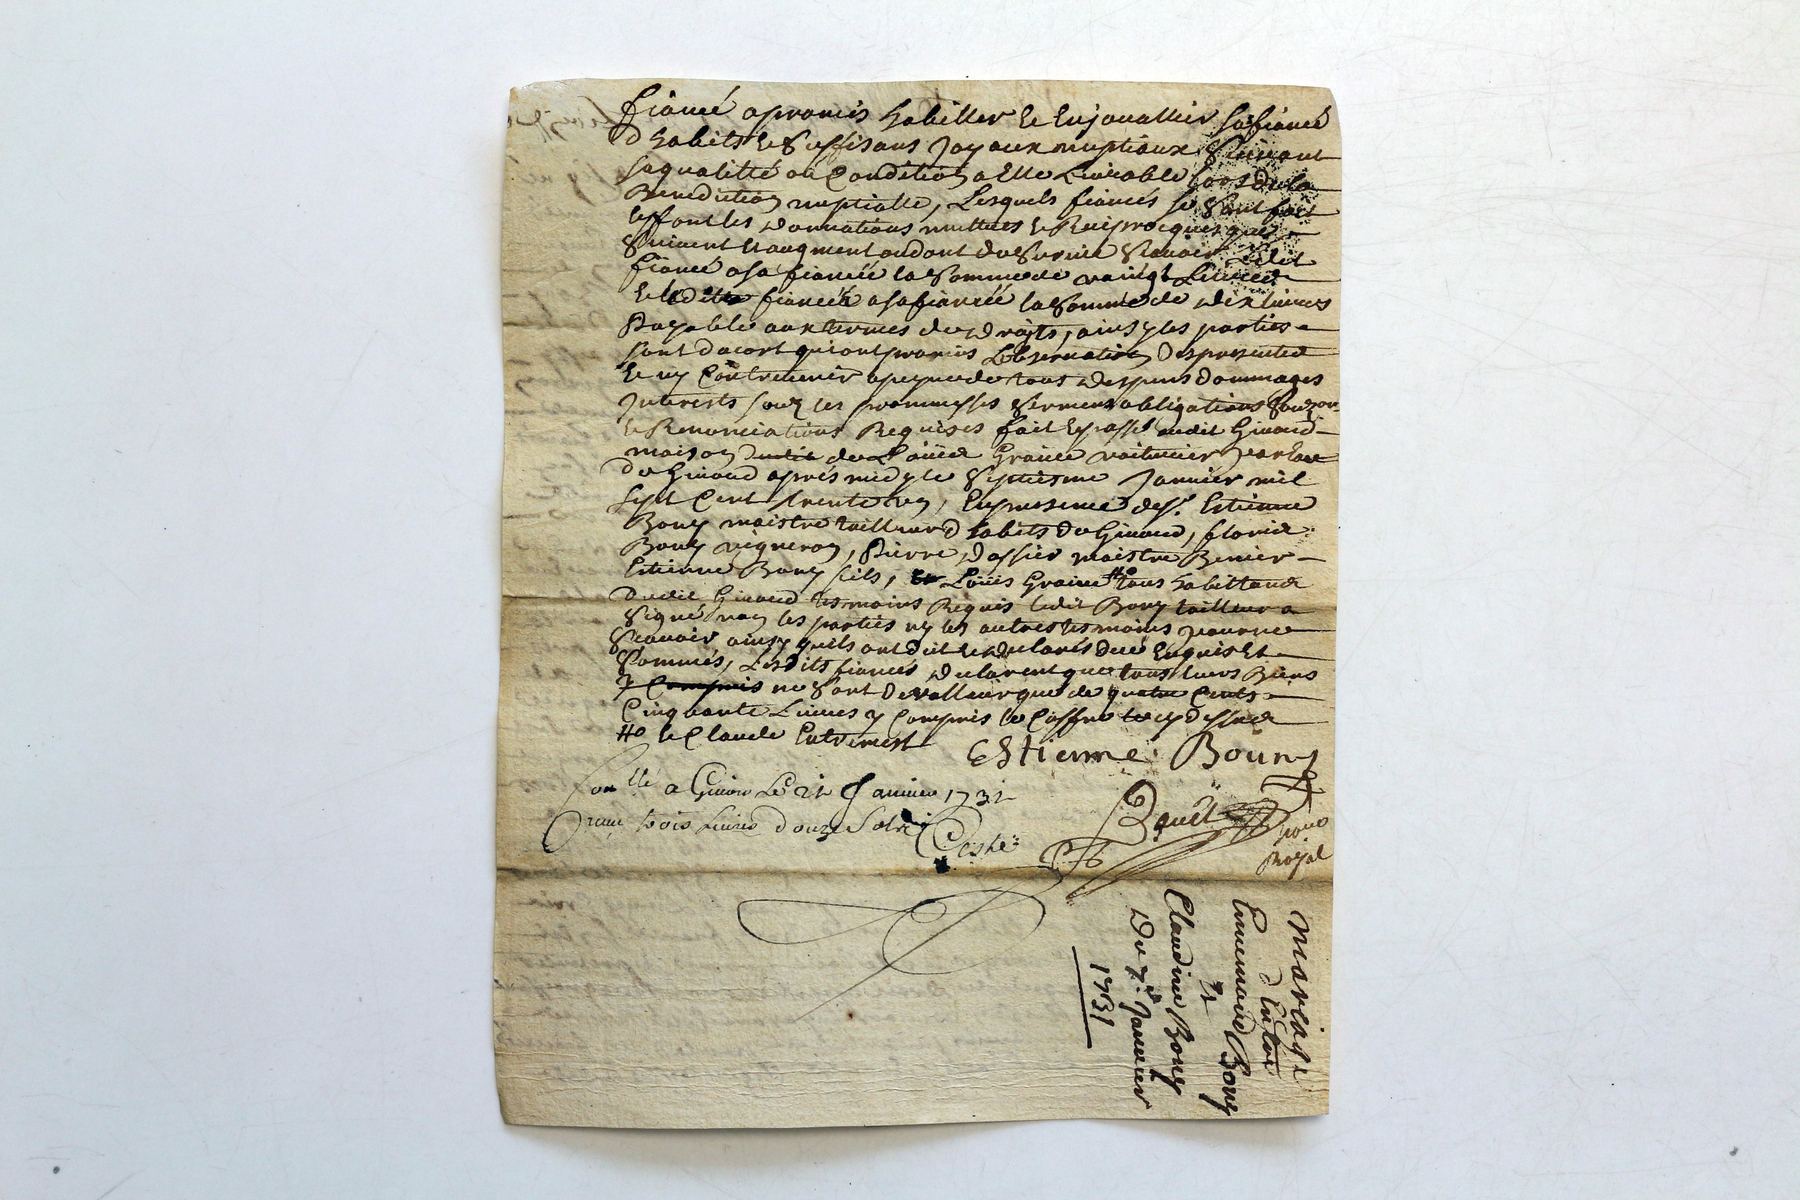 fiancé a promis habiller et Enjoualler sa fiancé
d'habits et suffisans Joyaux nuptiaux suivant
sa qualitté ou Condition a Elle Livrable lors de la
Benediction nuptialle, Lesquels fiancés se sont fait
et font les donnations mutues et Reciprocques que
suivent et augment audont du survie scavoir ledit
fiancé a sa fiancéé la somme de vaingt Livres
et ladite fiancéé a sa fiancéé la somme de dix livres
Payable aux termes de droits, ainsy les parties
sont dacort qui ont promis L'observation des presentes
et ny Contrevenir a peyne de tous despens dommages
Interests souz les prommesses sermens obligations souz
et Renonciations Requises fait et passé audit Givord
maison de Loüis Graine voiturier par Eau
de Givord aprés midy le septiesme Janvier mil
sept Cent trente un, En presence de sr. Estienne
Bouy maistre tailleur d habits de Givord, florie
Bouy vigneron, Pierre dossier maistre
Estienne Bouy fils, Loüis Graine # tous habittans
dudit Givord tesmoins Requis ledit Bouy tailleur a
signé non les parties ny les autres tesmoins pour ne
scavoir ainsy quils ont dit et declarés de ce Enquis Et
sommés, Lesdits fiancés declarent que tous leurs Biens
y Compris ne sont de valleur que de quatre Cents
Cinquante Livres y Compris le Coffre cy dessus
# et Claude
Estienne Bouy
Con llé a Givord Le 21 Janvier 1731
Receu trois Livres douze Sols
Royal
Mariage
d'
Ennemond Bouy
Et
Claudine Bouy
Du 7e. Janvier
1731